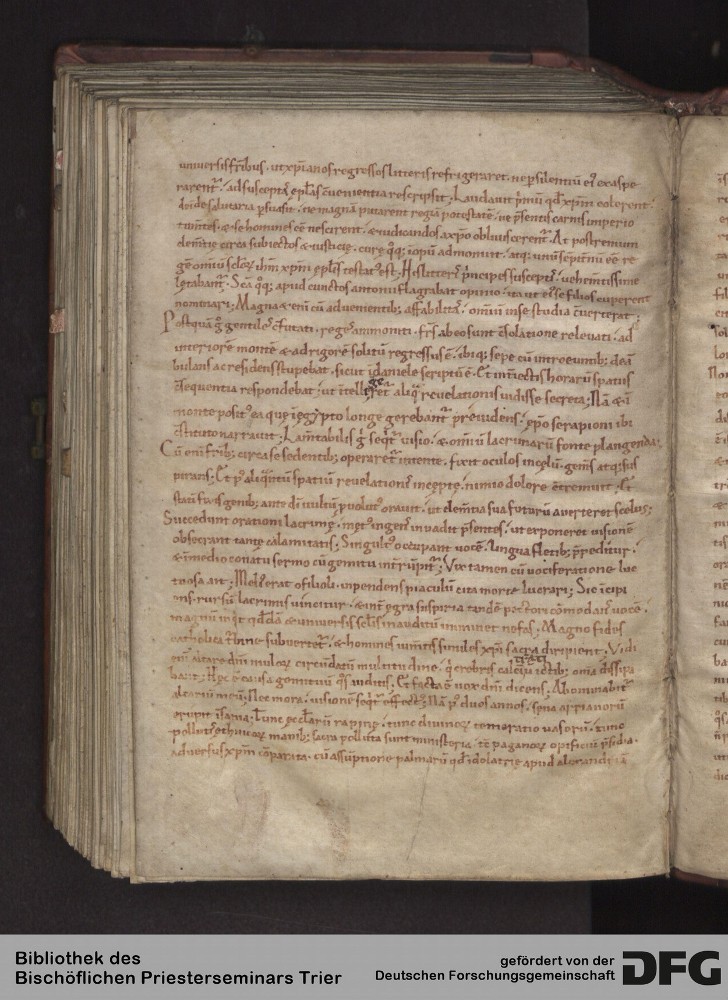 uniuersis fr̄ibus · ut xp̄ianos regressos litteris refrigeraret · ne ꝑ silentiū eiꝰ exaspe
rarent᷑ · ad susceptā ep̄las ꝯuenientia rescripsit ; Laudauit p̄mū qd̄ xp̄m colerent ·
deīde salutaria ꝑsuasit · ne magnā putarent regiā potestatē · ne p̄sentis carnis imperio
tumētes · & se homines ēē nescirent · & iudicandos a xp̄o obliuiscerent᷑ ; At postremum
clemētię circa subiectos & iusticię · curę qꝫ īopū admonuit · atqꝫ unū sēpit̄nū ēē re
gē omiū sc̄lorꝫ · ihm̄ xp̄m ep̄lis testatꝰ est ; His litteris p̄ncipes susceptis · uehem̄tissime
lętabant᷑ ; Sc̄a qꝫ apud cunctos antonii flagrabat opinio · ita ut eiꝰ se filios cuperent
nominari ; Magna & eni cū aduenientibꝫ affabilitas · omiū in se studia ꝯuerterat ;
Postquā g̊ gentiles ꝯfutati · reges ammoniti · fr̄s ab eo sunt ꝯsolatione releuati · ad
interiorē montē & ad rigorē solitū regressus ē · ibiqꝫ sepe cū introeuntibꝫ deā
bulans ac residens stupebat · sicut ī daniele scriptū ē · Et int̄iectis horarū spatiis
ꝯsequentia respondebat · ut ītellegeret᷑ aliq̄ reuelationis uidisse secreta ; Nā & ī
monte positꝰ ea quę ī egypto longe gerebant᷑ p̄uidens · ep̄o serapioni ibi
ꝯstituto narrauit ; Lam̄tabilis g̊ seqt᷑ uisio · & omiū lacrimarū fonte plangenda ;
Cū eni fr̄ibꝫ circa se sedentibꝫ operaret᷑ intente · fixit oculos in cęlū · gem̄s atqꝫ sus
pirans ; Et pꝰ aliqn̄tū spatiū reuelationis inceptę · nimio dolore ꝯtremuit · Et
statī fixis genibꝫ ante dī uultū ꝓuolutꝰ orauit · ut clem̄tia sua futurū auerteret scelus ;
Succedunt orationi lacrimę · metꝰ ingens inuadit p̄sentes · ut exponeret uisionē
obsecrant tantę calamitatis · Singultꝰ occupant uocē · lingua fletibꝫ p̄peditur ·
& ī medio conatu sermo cū gemitu int̄rūpit᷑ ; Vix tamen cū uociferatione luc
tuosa ait ; Meliꝰ erat o filioli · inpendens piaculū cita morte lucrari ; Sic īcipi
ens · rursū lacrimis uincitur · & int̄ egra suspiria tandē pectori cōmodans uocē ·
magnū inqt qd̄dā & uniuersis sc̄lis inauditū imminet nefas ; Magno fides
catholica t̄bine subuertet᷑ · & homines ium̄tis similes xp̄i sacra diripient · Vidi
eni altare dn̄i mulorꝫ circūdatū multitudine · q̄ crebris calcium ictibꝫ omia dissipa
bant ; Hęc ē causa gemituū qꝫ audistis · Et facta ē uox dn̄i dicens ; Abominabit᷑
altariū meū ; Nec mora · uisionē seqt᷑ effectꝰ ; Nā pꝰ duos annos · sęua arrianorū
erupit īsania ; Tunc ęcclarū rapinę · tunc diuinorꝫ temeratio uasorū · tunc
pollutis ethnicorꝫ manibꝫ sacra polluta sunt ministeria · tc̄ paganorꝫ opificū p̄sidia ·
aduersus xp̄m cōparata · cū assūptione palmarū qd̄ idolatrię apud alexandriā

Bibliothek des
Bischöflichen Priesterseminars Trier
gefördert von der
Deutschen Forschungsgemeinschaft
DFG